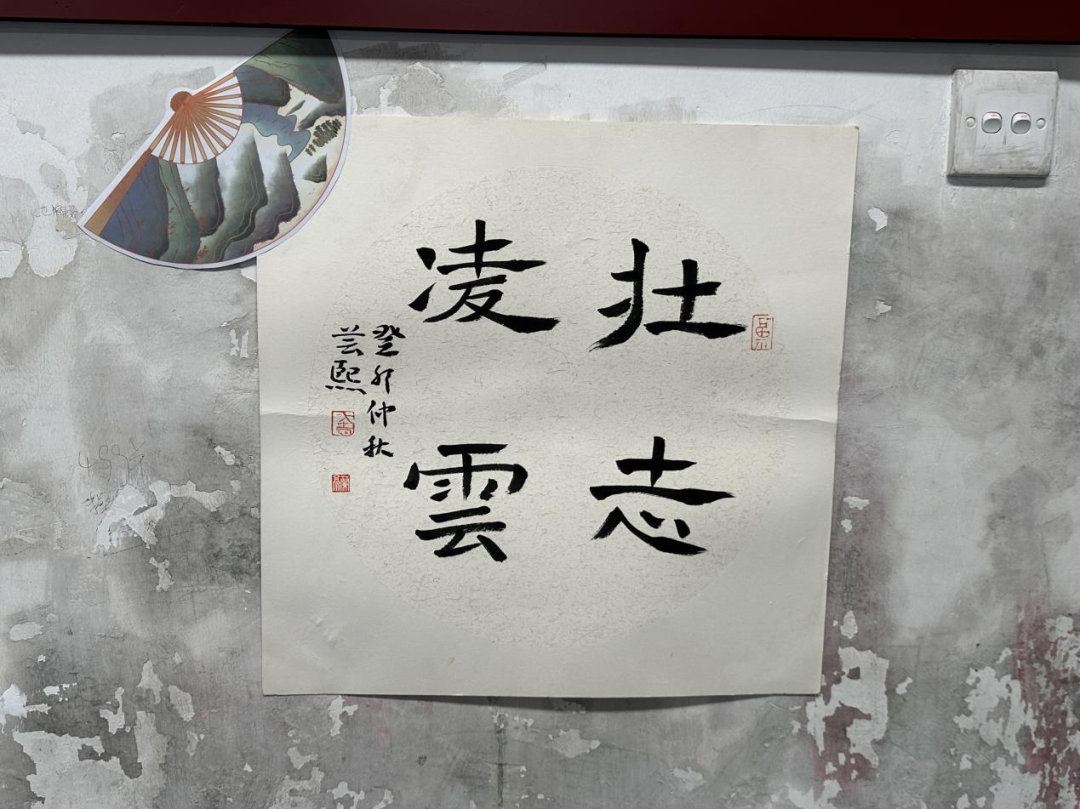 壮志
凌雲
癸卯仲秋
芸熙